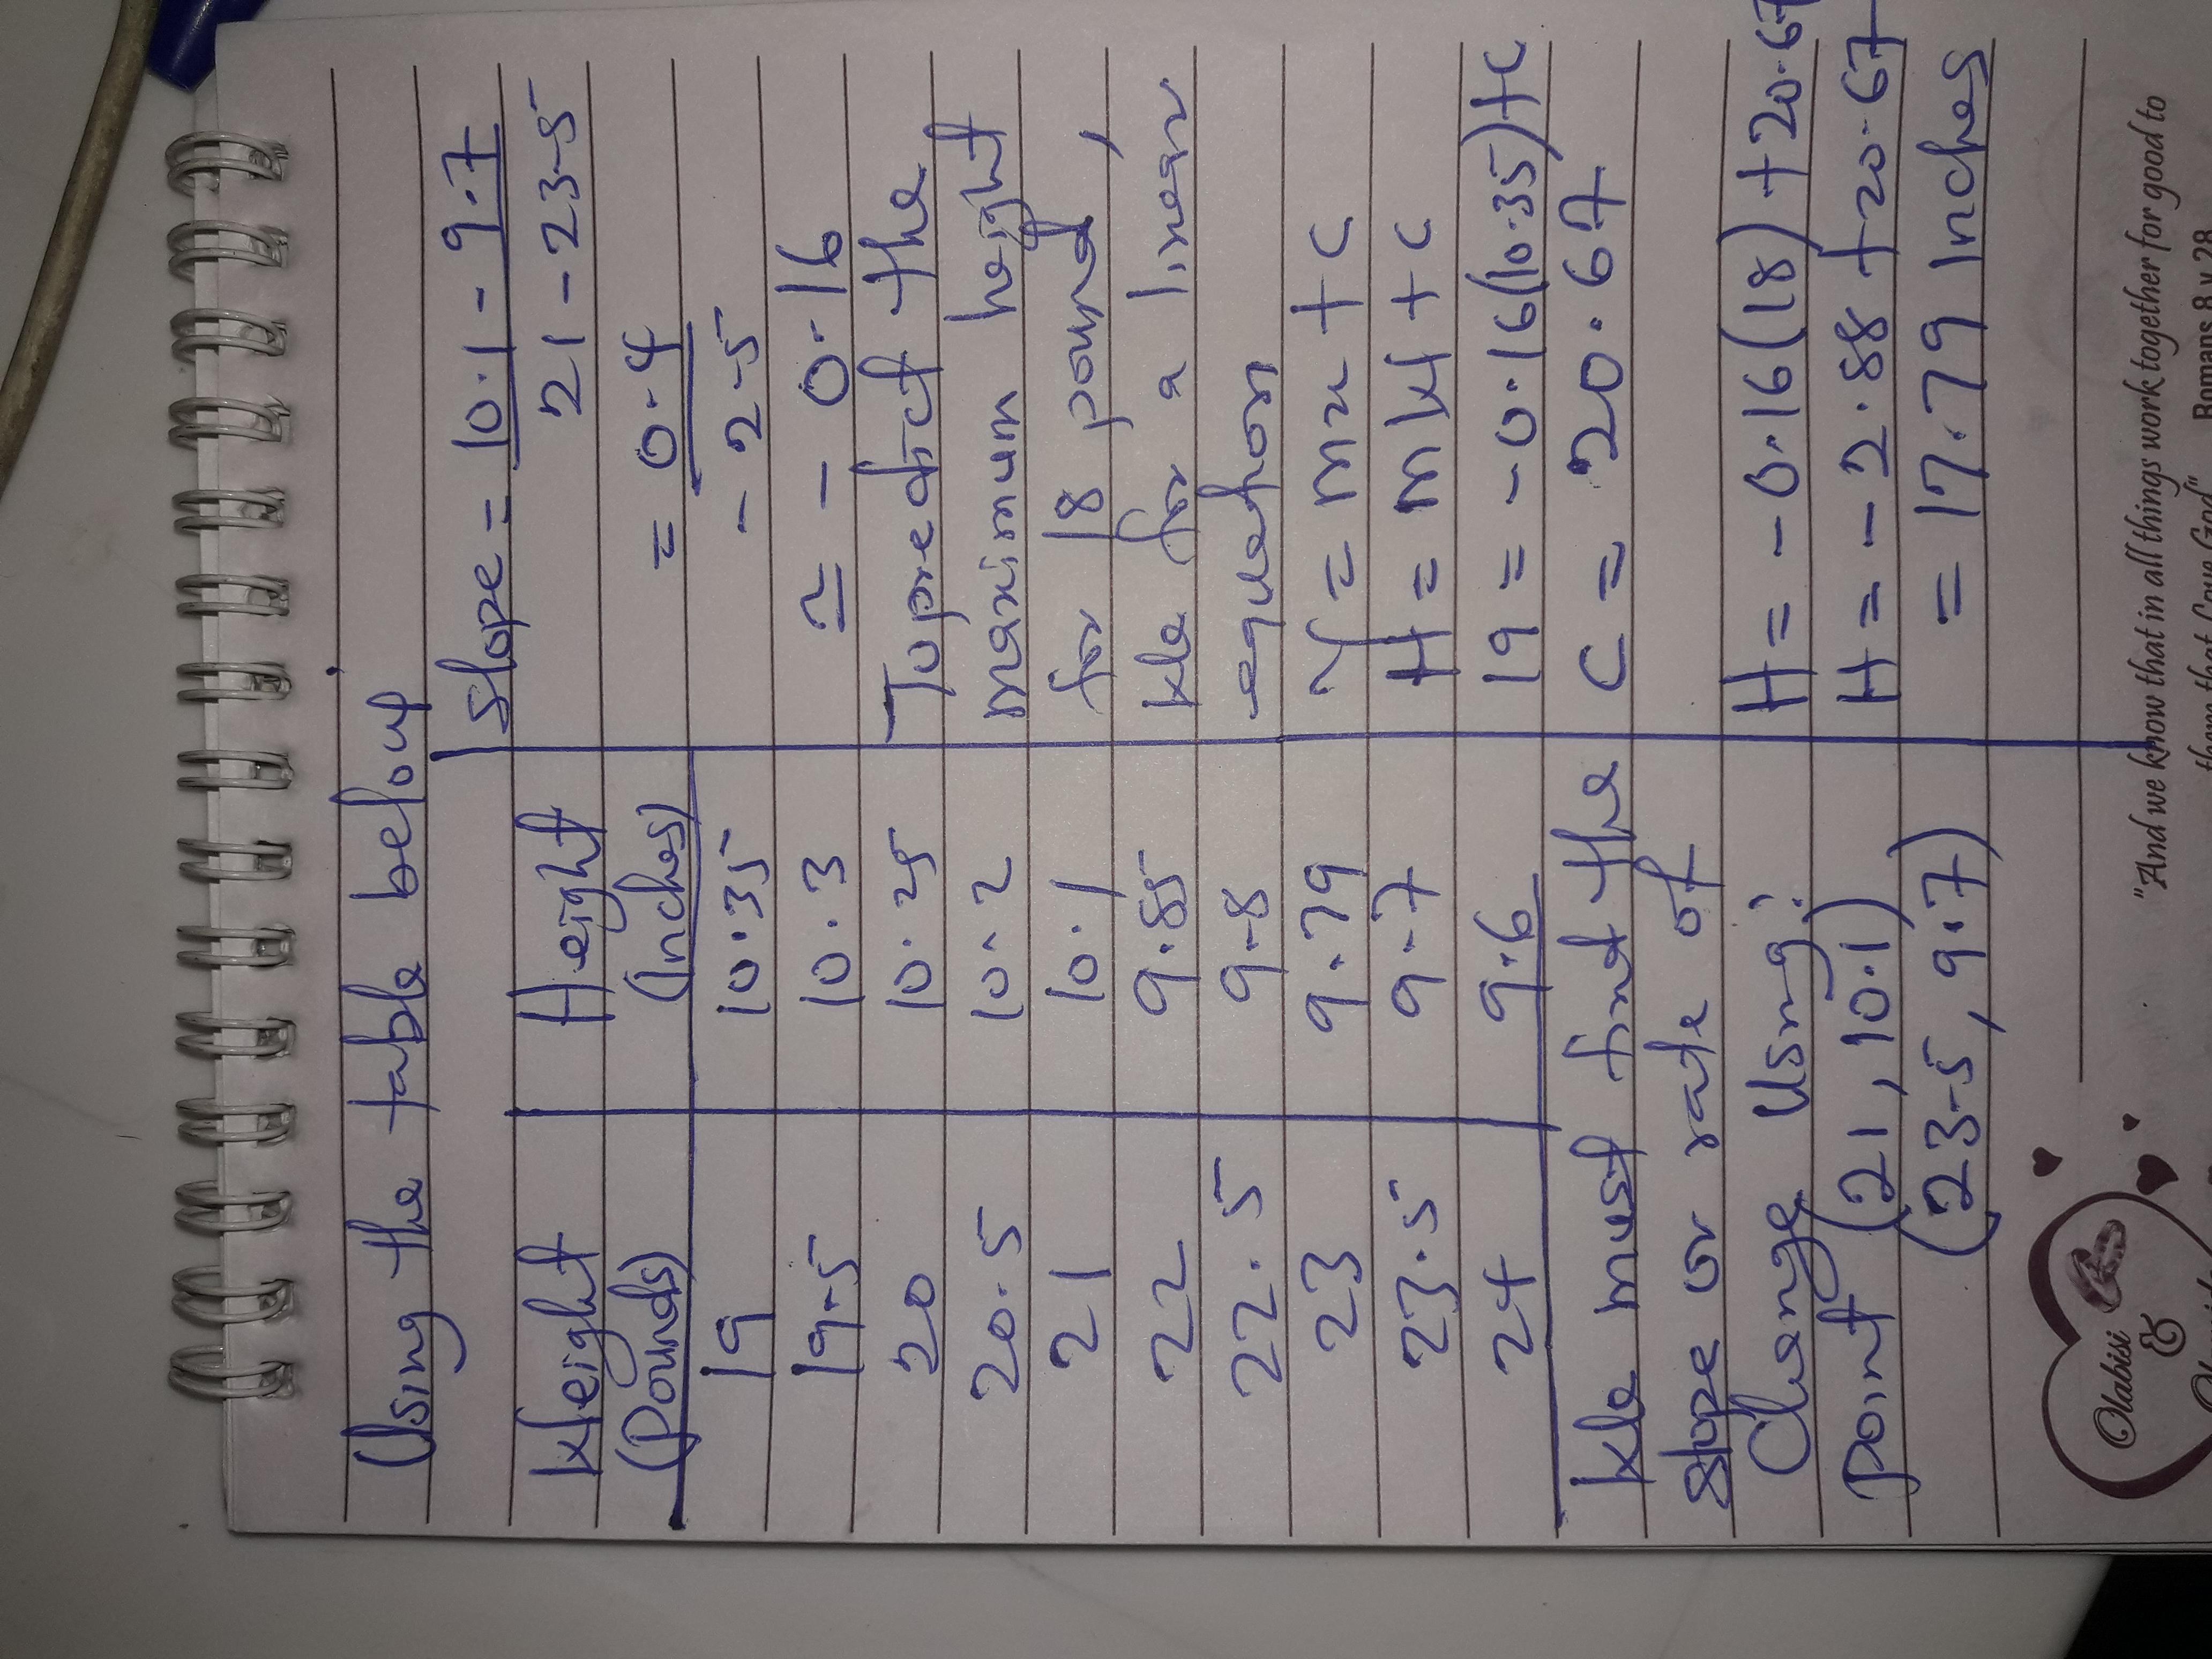 Using the table below
Weight
(Pounds)
Height
(Inches)
19 10.35
19.5 10.3
20 10.25
20.5 10.2
21 10.1
22 9.85
22.5 9.8
23 9.79
23.5 9.7
24 9.6
We must find the
slope or rate of
Change Using:
Point (21, 10.1)
(23.5, 9.7)
Slope = 10.1 - 9.7
21 - 23.5
= 0.4
- 2.5
≃ - 0.16
To predict the
maximum height
for 18 pound,
We for a linear
equation
Y = mx + c
H = mW + c
19 = -0.16(10.35) + c
C = 20.67
H = -0.16(18) + 20.67
H = -2.88 + 20.67
= 17.79 Inches
"And we know that in all things work together for good to
them that Love God"
Romans 8 v 28
Olabisi
&